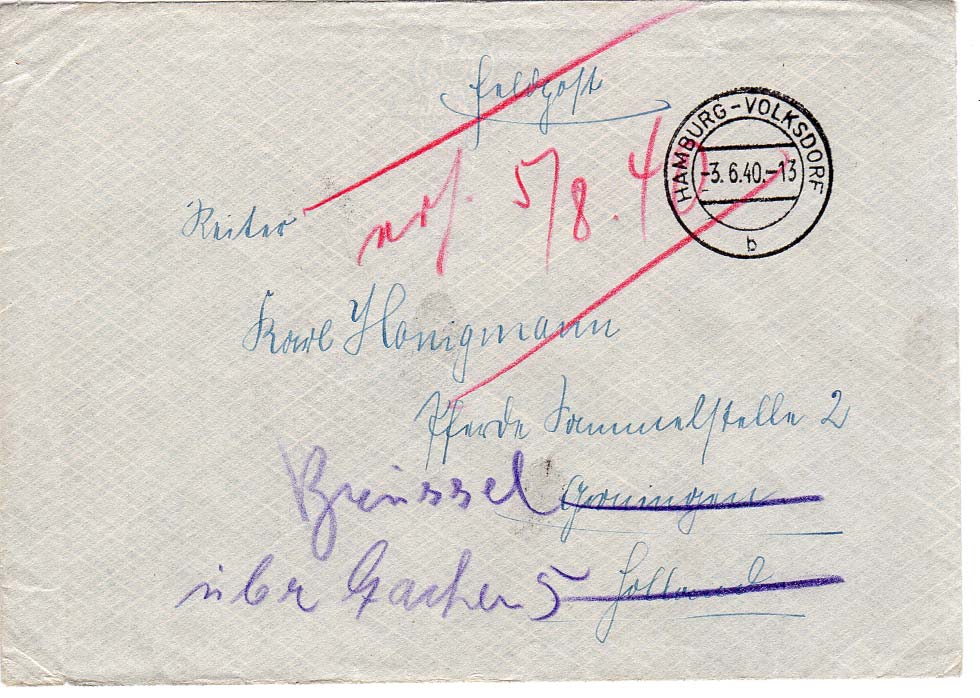 Feldpost
HAMBURG-VOLKSDORF
-3.6.40.-13
b
5/8.40
Reiter
Karl Honigmann
Pferde Sammelstelle 2
Brüssel Groningen
über Aachen 5 Holland